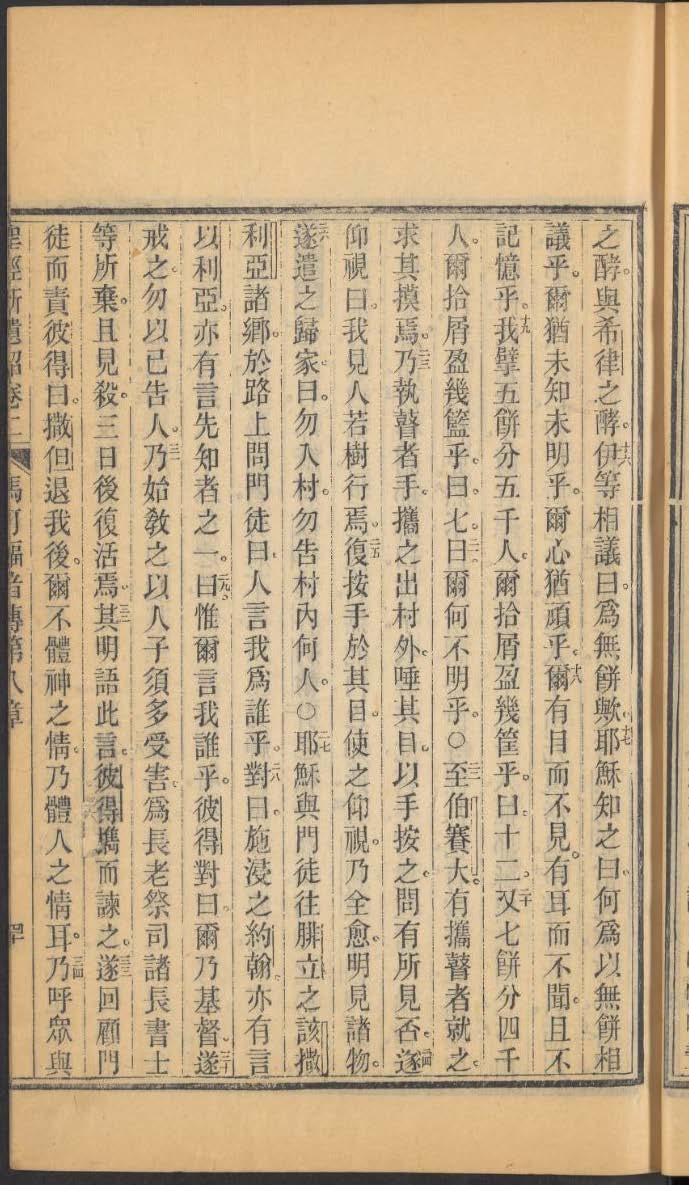 之酵。與希律之酵。十六伊等相議曰。爲無餅歟。十七耶穌知之曰。何爲以無餅相
議乎。爾猶未知未明乎。爾心猶頑乎。十八爾有目而不見。有耳而不聞。且不
記憶乎。十九我擘五餅分五千人。爾拾屑盈幾筐乎。曰十二。二十又七餅分四千
人。爾拾屑盈幾籃乎。曰七。二一曰爾何不明乎。○二二至伯賽大。有攜瞽者就之。
求其摸焉。二三乃執瞽者手。攜之出村外。唾其目。以手按之。問有所見否。二四遂
仰視曰。我見人若樹行焉。二五復按手於其目。使之仰視。乃全愈。明見諸物。
二六遂遣之歸家。曰。勿入村。勿吿村內何人。○二七耶穌與門徒往腓立之該撒
利亞諸鄉。於路上問門徒曰。人言我爲誰乎。二八對曰。施浸之約翰。亦有言
以利亞。亦有言先知者之一。二九曰。惟爾言我誰乎。彼得對曰。爾乃基督。三十遂
戒之。勿以己告人。三一乃始敎之以人子須多受害。爲長老祭司諸長書士
等所棄。且見殺。三日後復活焉。三二其明語此言。彼得攜而諫之。三三遂回顧門
徒而責彼得曰。撒但退我後。爾不體神之情。乃體人之情耳。三四乃呼眾與
聖經新遺詔卷二 馬可福音傳第八章